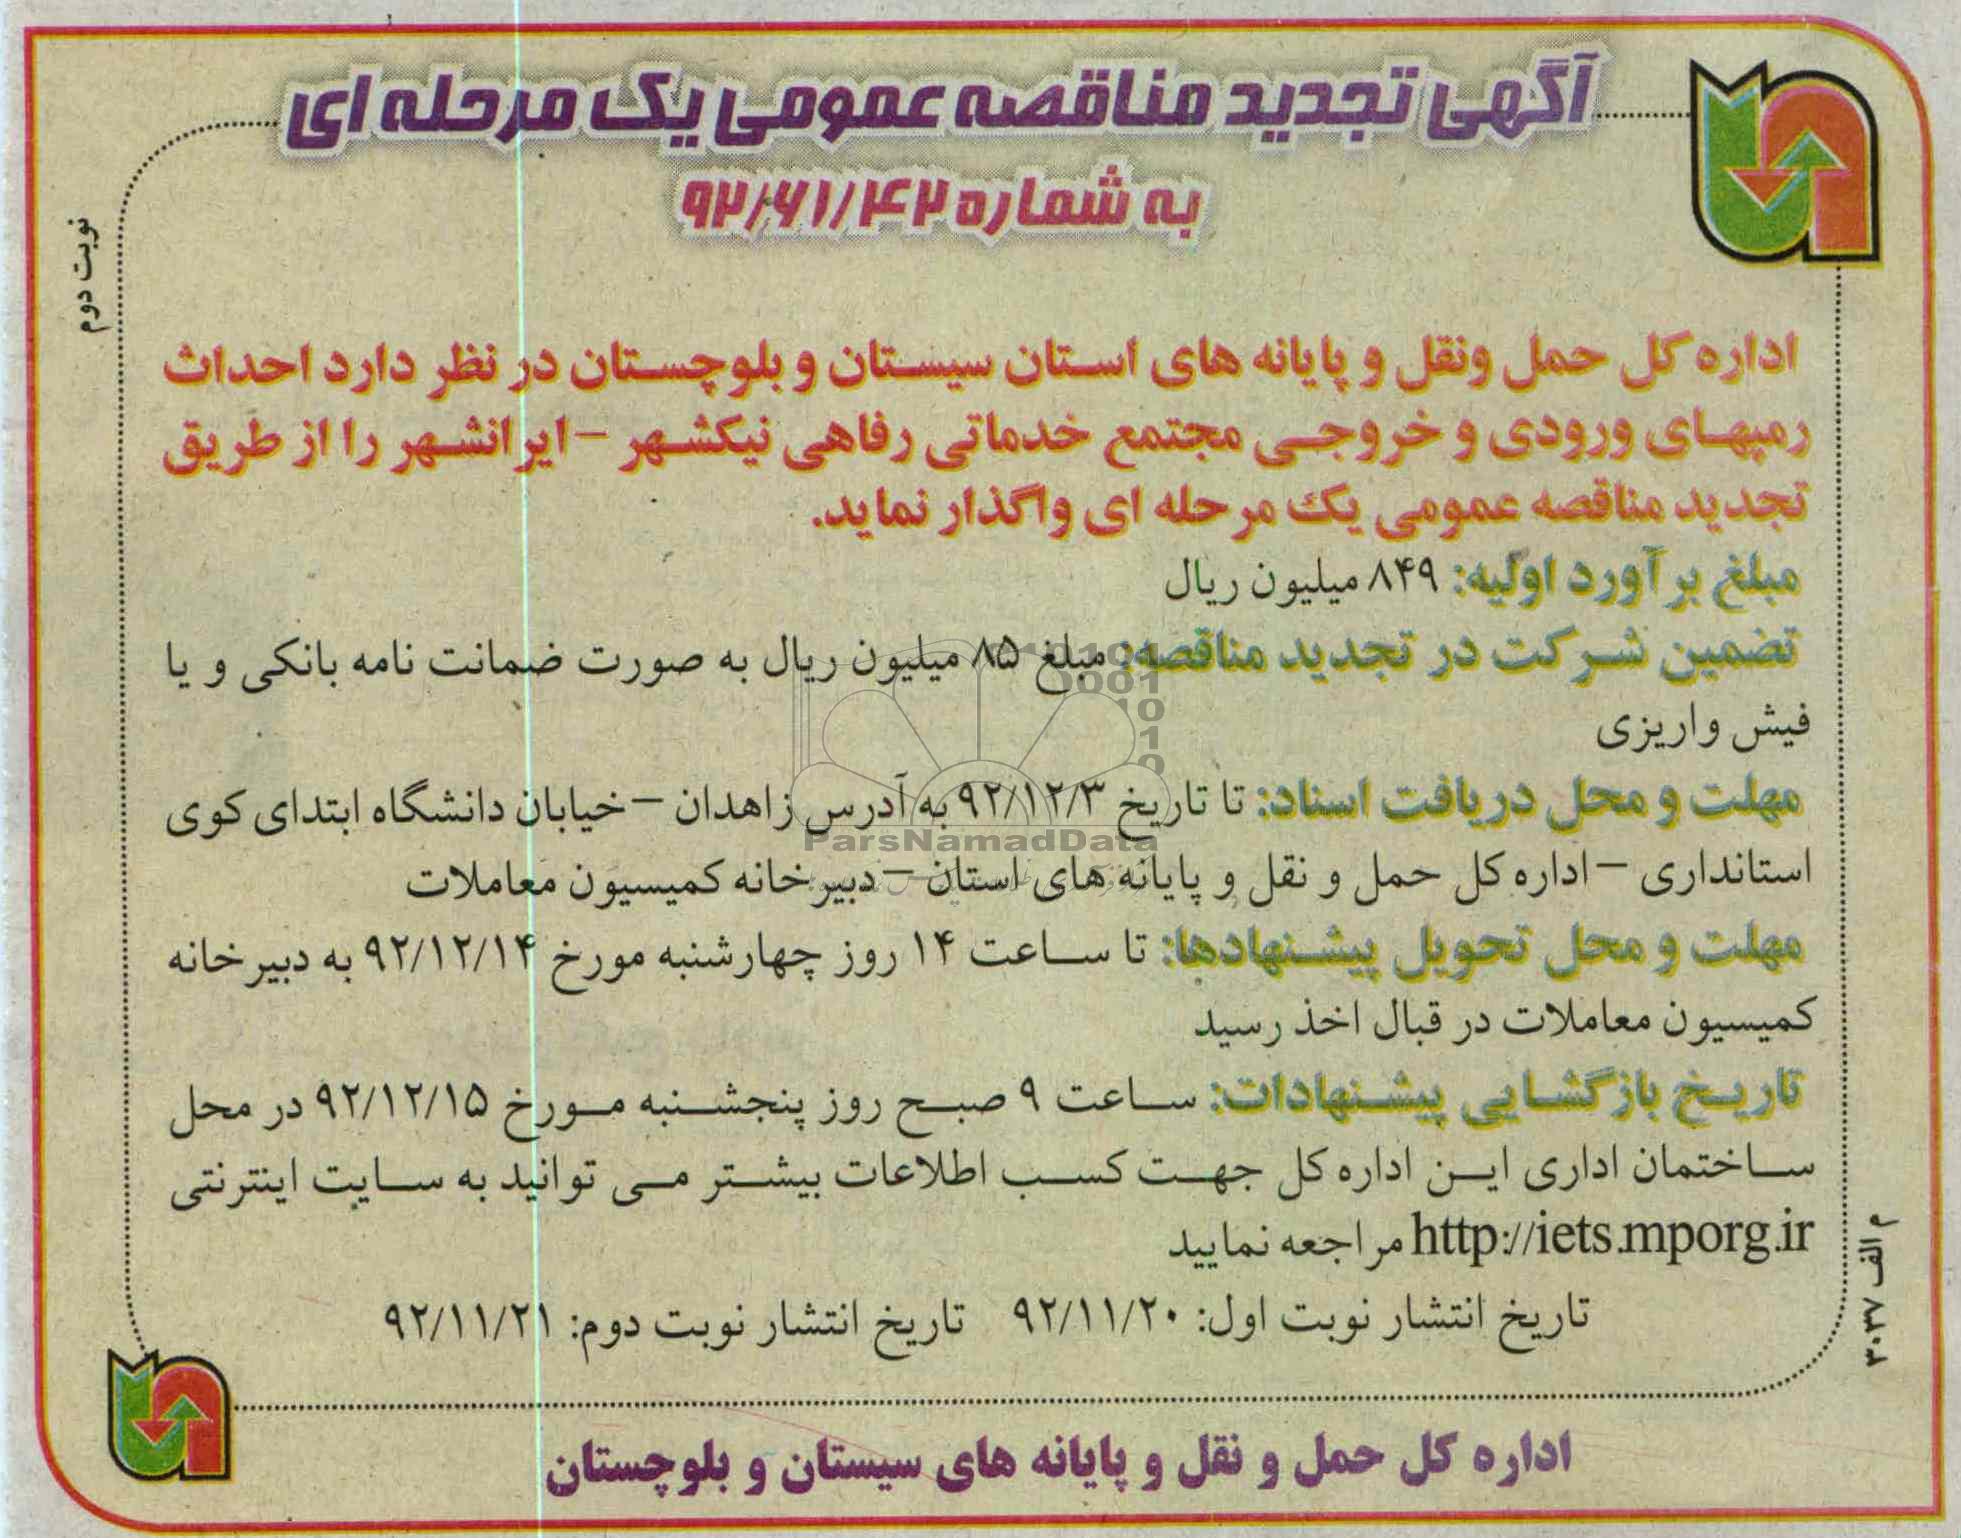 آگهی تجدید مناقصه عمومی یک مرحله ای
به شماره ۹۲/۶۱/۴۲
نوبت دوم
اداره کل حمل ونقل و پایانه های استان سیستان و بلوچستان در نظر دارد احداث
رمپهای ورودی و خروجی مجتمع خدماتی رفاهی نیکشهر – ایرانشهر را از طریق
تجدید مناقصه عمومی یک مرحله ای واگذار نماید.
مبلغ برآورد اولیه: ۸۴۹ میلیون ریال
تضمین شرکت در تجدید مناقصه: مبلغ ۸۵ میلیون ریال به صورت ضمانت نامه بانکی و یا
فیش واریزی
مهلت و محل دریافت اسناد: تا تاریخ ۹۲/۱۲/۳ به آدرس زاهدان – خیابان دانشگاه ابتدای کوی
استانداری – اداره کل حمل و نقل و پایانه های استان – دبیرخانه کمیسیون معاملات
مهلت و محل تحویل پیشنهادها: تا ساعت ۱۴ روز چهارشنبه مورخ ۹۲/۱۲/۱۴ به دبیرخانه
کمیسیون معاملات در قبال اخذ رسید
تاریخ بازگشایی پیشنهادات: ساعت ۹ صبح روز پنجشنبه مورخ ۹۲/۱۲/۱۵ در محل
ساختمان اداری این اداره کل جهت کسب اطلاعات بیشتر می توانید به سایت اینترنتی
http://iets.mporg.ir مراجعه نمایید
تاریخ انتشار نوبت اول: ۹۲/۱۱/۲۰ تاریخ انتشار نوبت دوم: ۹۲/۱۱/۲۱
م الف ۳۰۳۷
اداره کل حمل و نقل و پایانه های سیستان و بلوچستان
ParsNamadData